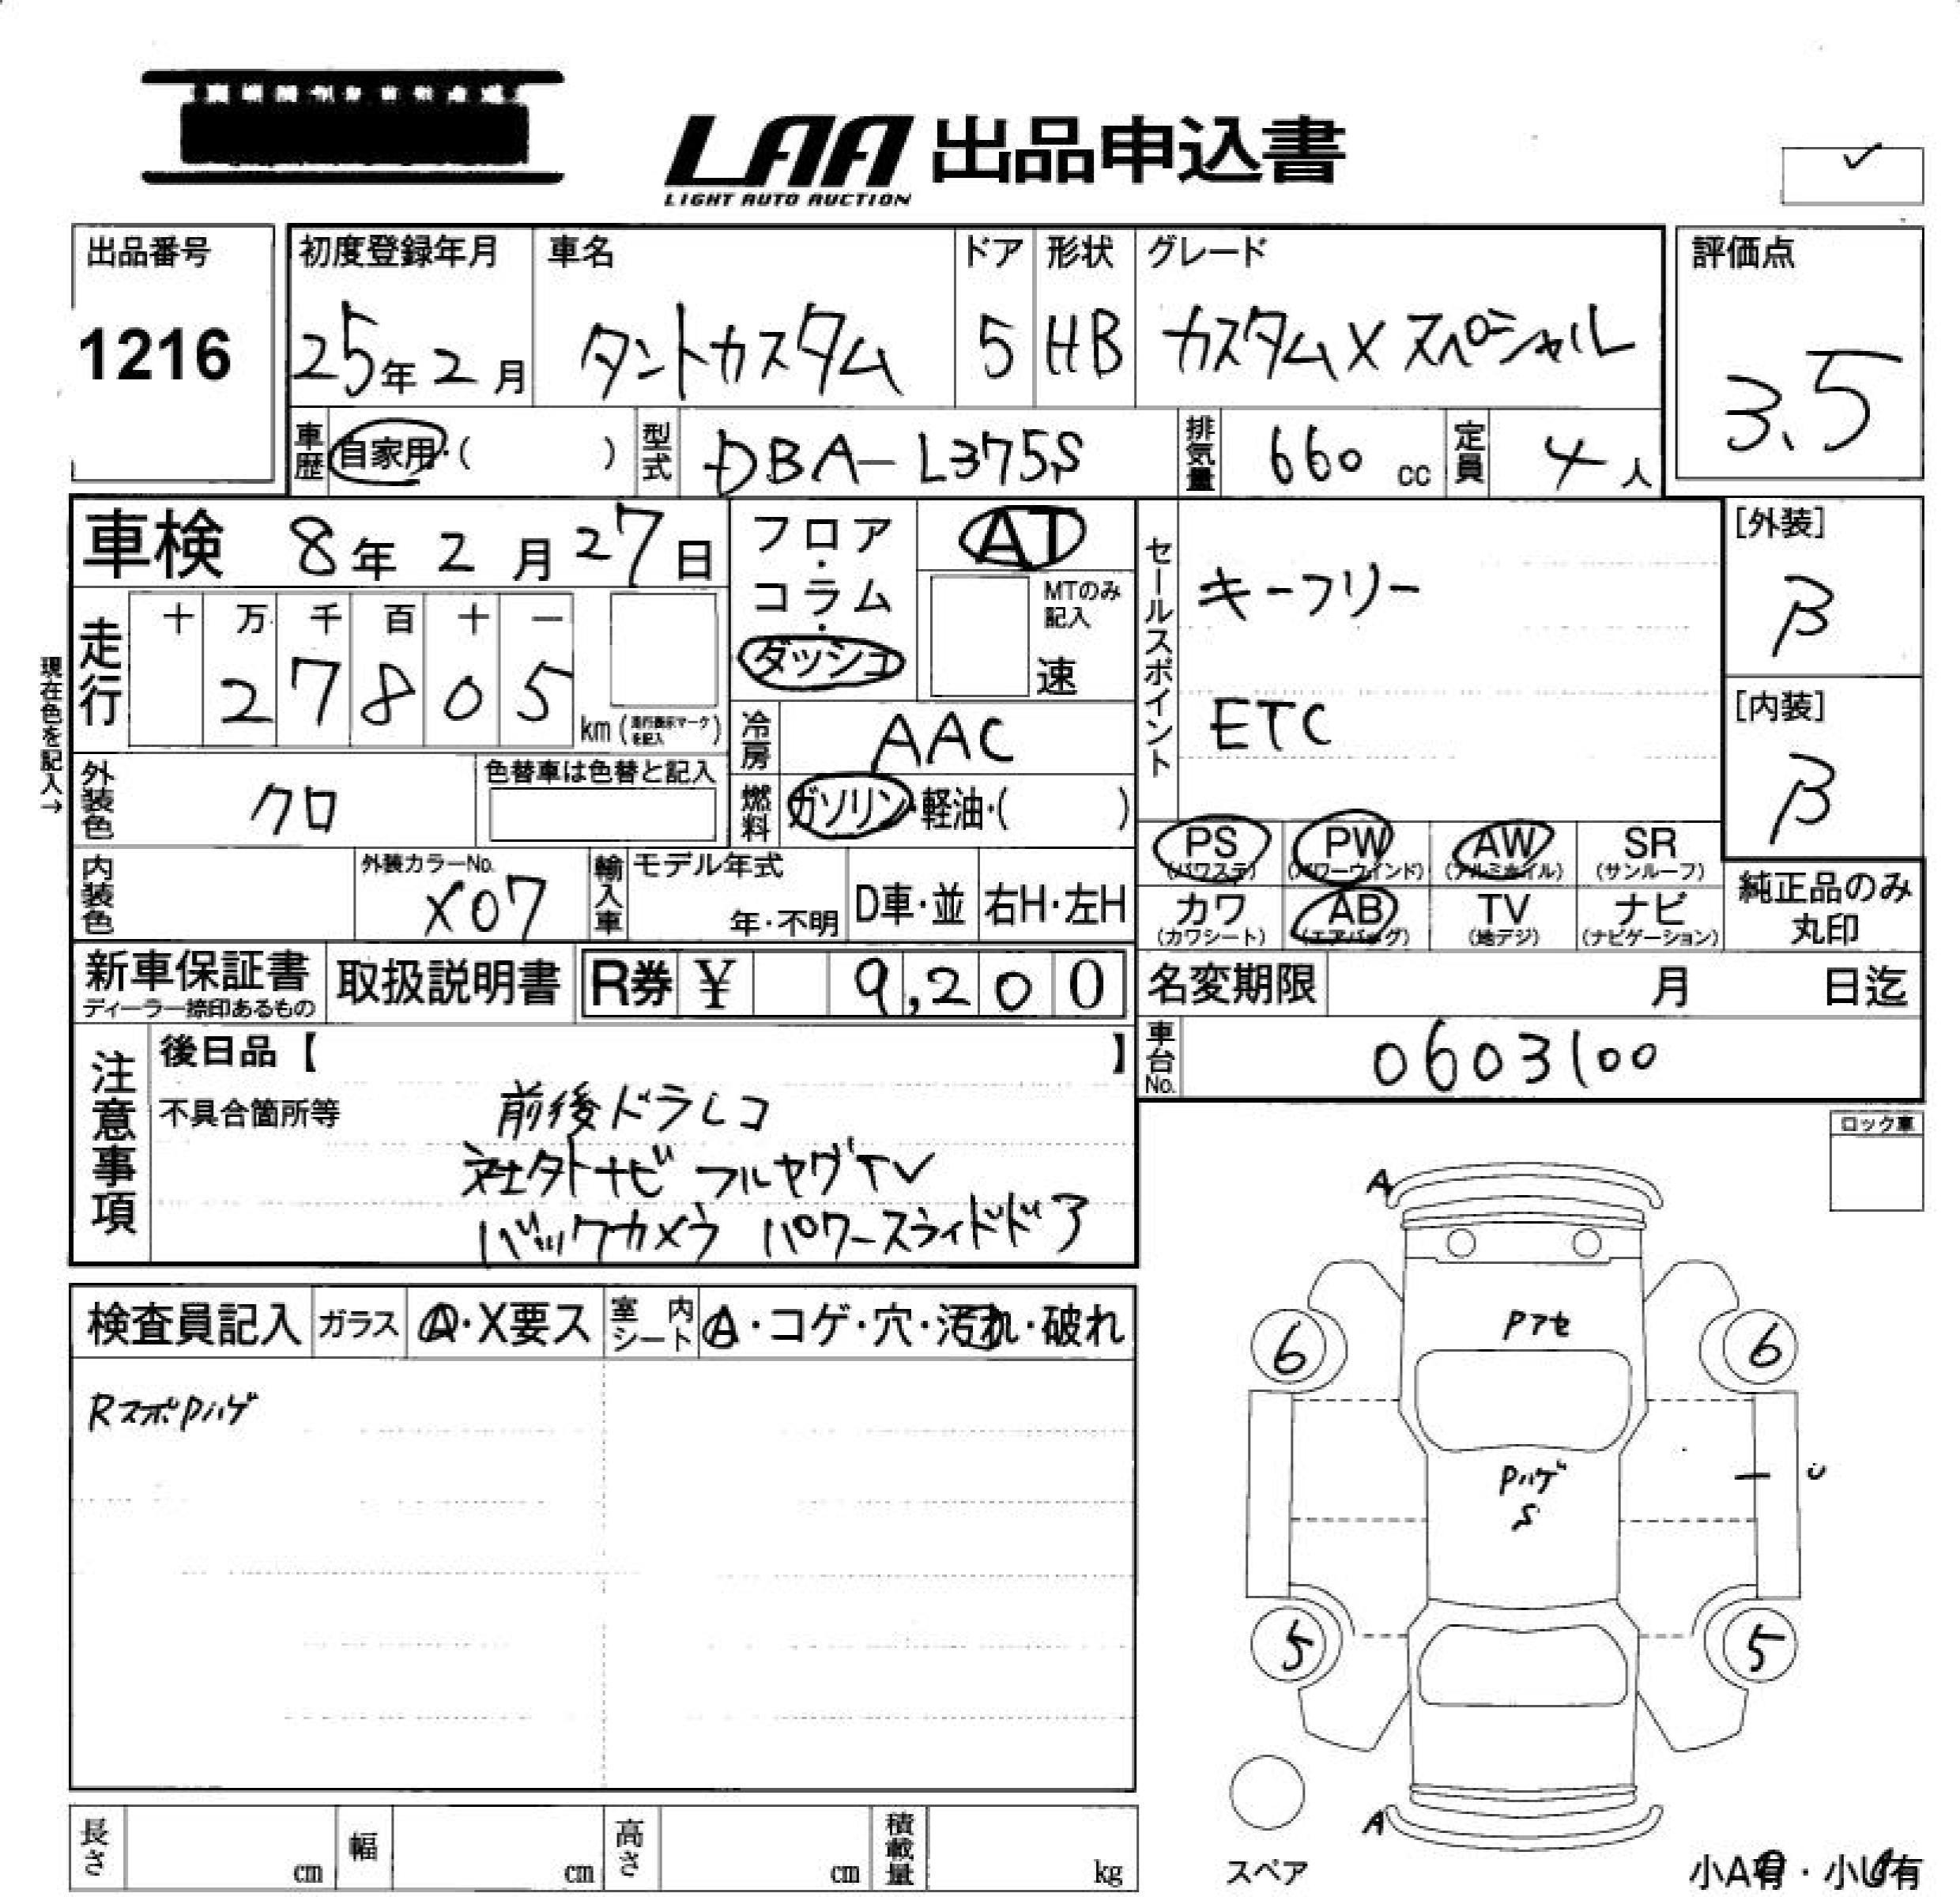 LAA 出品申込書
LIGHT AUTO AUCTION
出品番号
1216
初度登録年月
25年2月
車名
タントカスタム
ドア
5
形状
HB
グレード
カスタムX スペシャル
評価点
3.5
車歴
自家用・( )
型式
DBA-L375S
排気量
660 cc
定員
4人
車検 8年2月27日
現在色を記入→
走行
十 万 千 百 十 一
2 7 8 0 5
km (走行表示マークを記入)
フロア・コラム・ダッシュ
AT
MTのみ記入
速
冷房
AAC
燃料
ガソリン・軽油・( )
外装色
クロ
色替車は色替と記入
内装色
外装カラーNo.
X07
輸入車
モデル年式
年・不明
D車・並
右H・左H
セールスポイント
キーフリー
ETC
[外装]
β
[内装]
β
PS (パワステ)
PW (パワーウインド)
AW (アルミホイル)
SR (サンルーフ)
カワ (カワシート)
AB (エアバッグ)
TV (地デジ)
ナビ (ナビゲーション)
純正品のみ
丸印
新車保証書
ディーラー捺印あるもの
取扱説明書
R券 ¥ 9,200
名変期限 月 日迄
車台No.
0603100
注意事項
後日品【 】
不具合箇所等
前後ドラレコ
社外ナビ フルセグTV
バックカメラ パワースライドドア
ロック車
検査員記入
ガラス
A・X要ス
室内シート
A・コゲ・穴・汚れ・破れ
RスポPハゲ
A
Pアセ
6
6
Pハゲ
S
U
5
5
A
スペア
小A有・小U有
長さ cm
幅 cm
高さ cm
積載量 kg